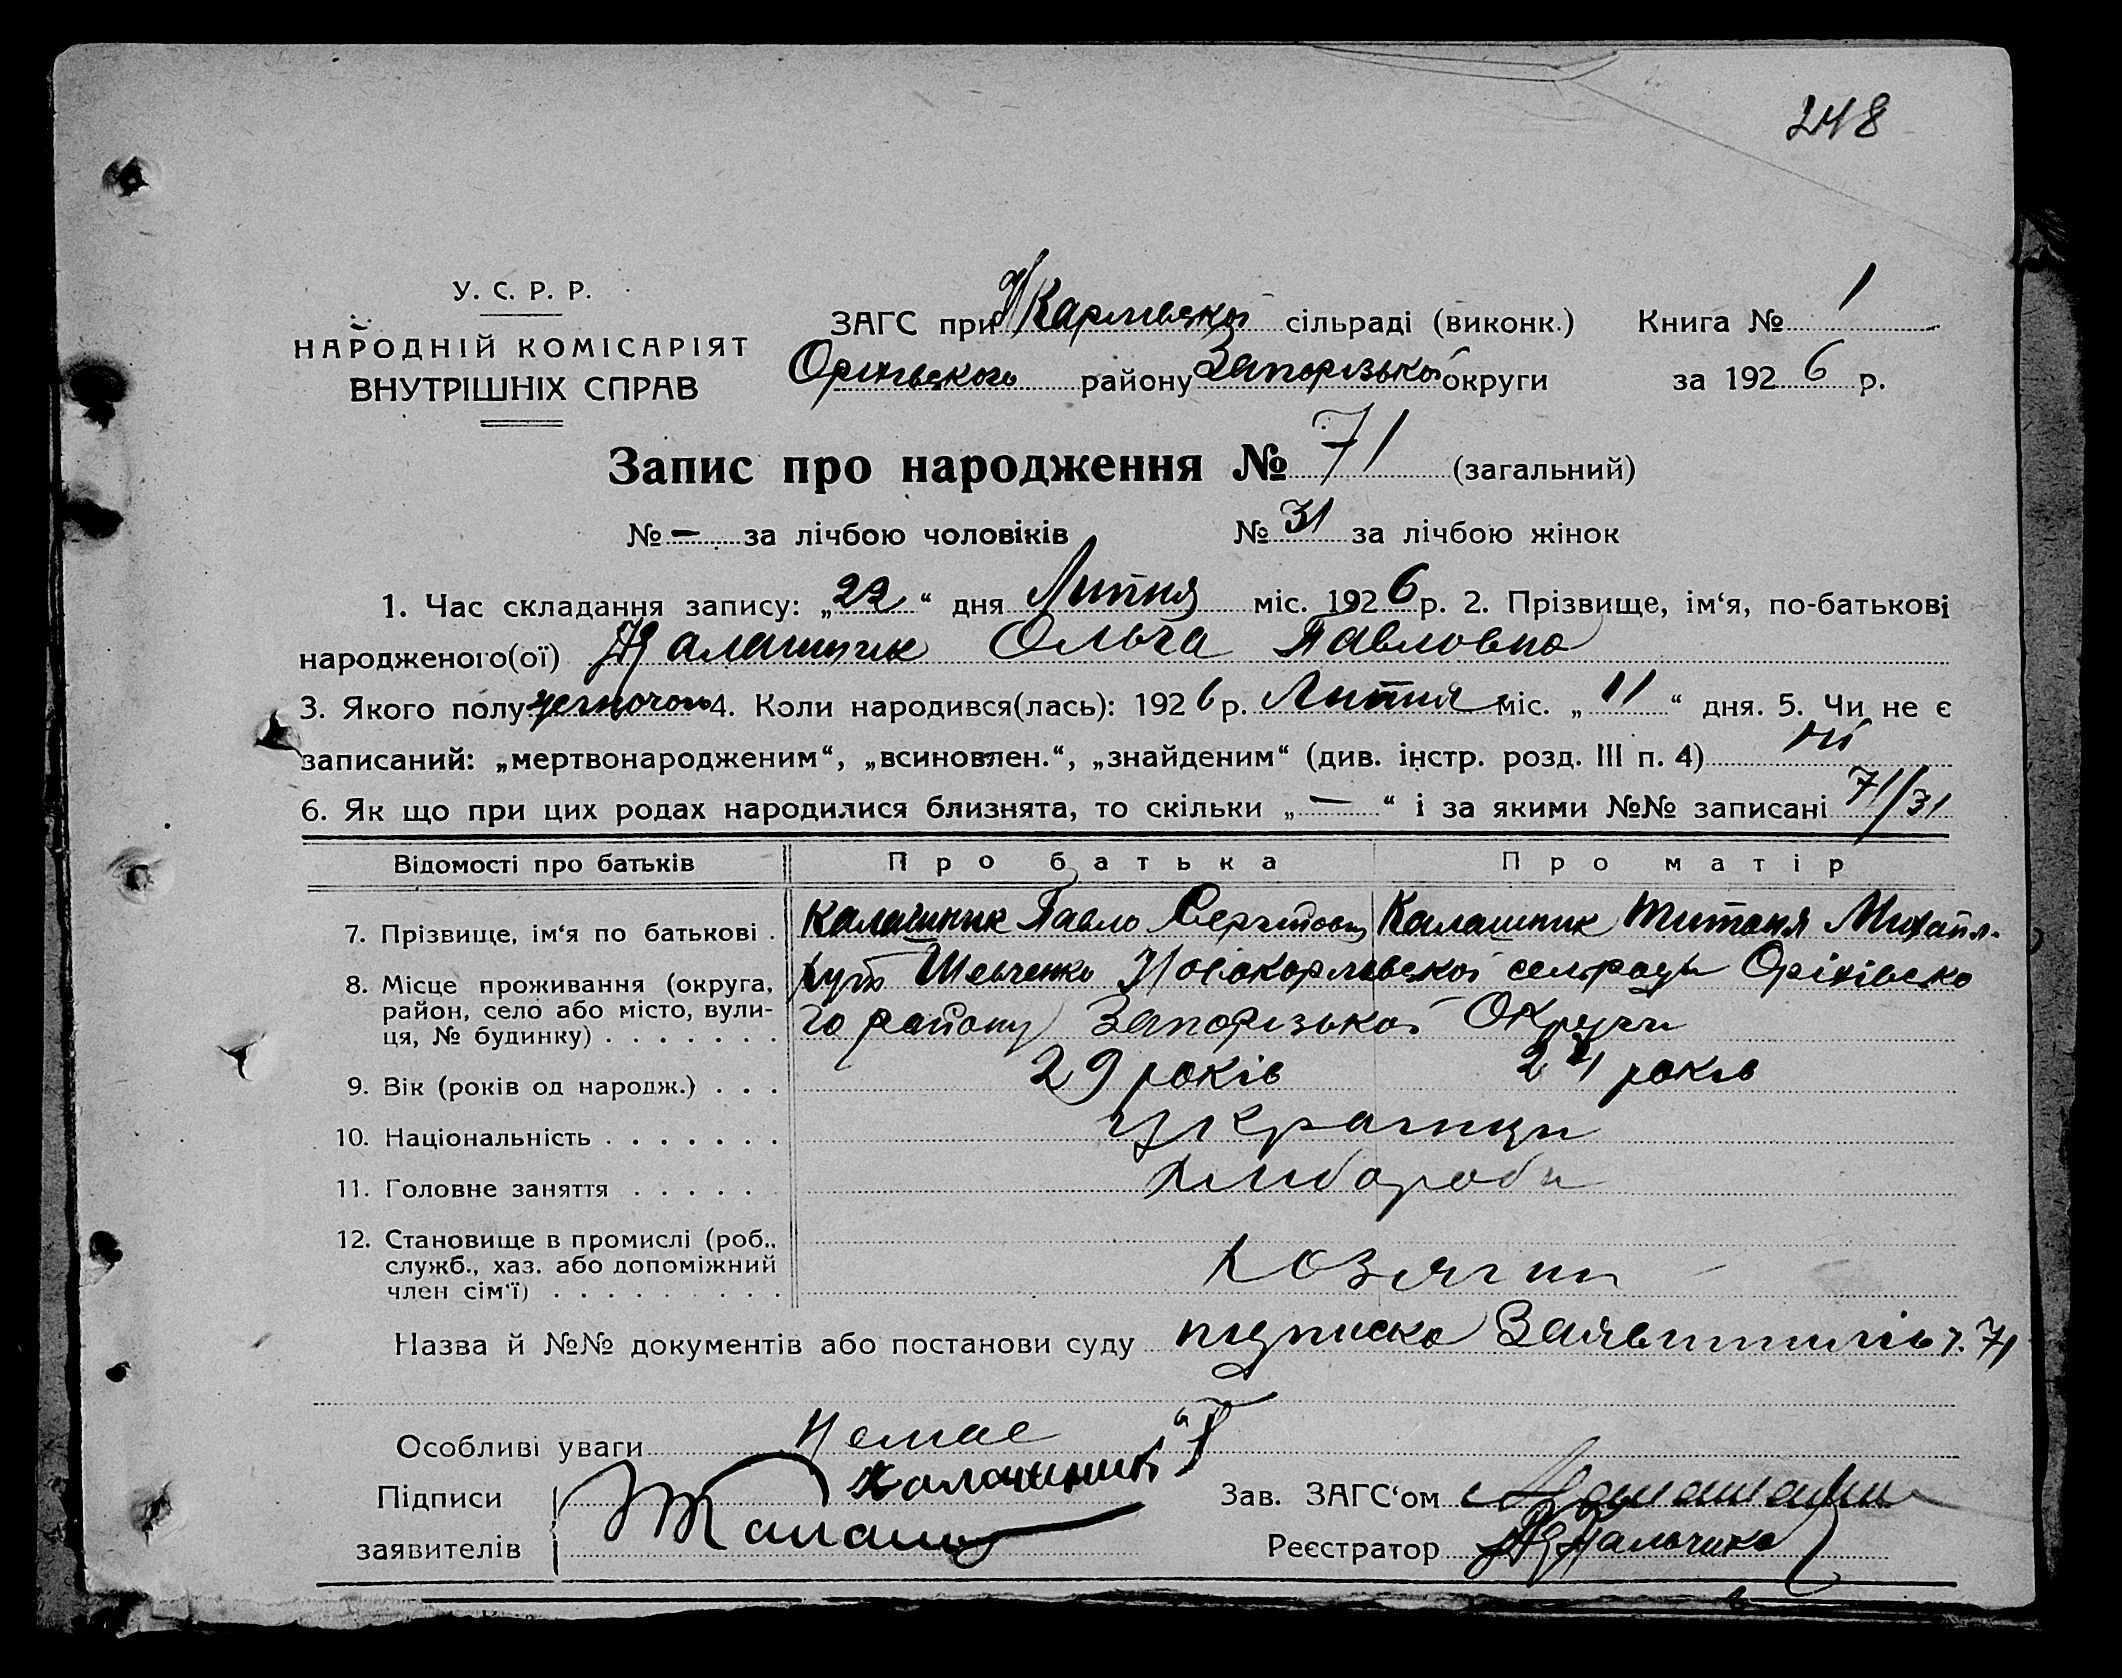 248
У. С. Р. Р.
НАРОДНІЙ КОМІСАРІЯТ
ВНУТРІШНІХ СПРАВ
ЗАГС при Н/Карлівській сільраді (виконк.) Книга № 1
Оріхівського району Запорізької округи за 1926 р.
Запис про народження № 71 (загальний)
№ — за лічбою чоловіків № 31 за лічбою жінок
1. Час складання запису: „22“ дня Липня міс. 1926 р. 2. Прізвище, ім‘я, по-батькові
народженого(ої) Калашник Ольга Павловна
3. Якого полу жиночого 4. Коли народився(лась): 1926 р. Липня міс. „11“ дня. 5. Чи не є
записаний: „мертвонародженим“, „всиновлен.“, „знайденим“ (див. інстр. розд. III п. 4) ні
6. Як що при цих родах народилися близнята, то скільки „—“ і за якими №№ записані 71/31
Відомості про батьків Про батька Про матір
7. Прізвище, ім‘я по батькові . Калашник Павло Сергійович Калашник Титяня Михайл.
8. Місце проживання (округа, район, село або місто, вулиця, № будинку) . . . . . . . хут Шевченко Новокарлівської сельради Оріхівсько
го району Запорізької Округи
9. Вік (років од народж.) . . . 29 років 24 років
10. Національність . . . . . . . Українци
11. Головне заняття . . . . . Хлибороби
12. Становище в промислі (роб., служб., хаз. або допоміжний член сім‘ї) . . . . . . . . . Хозяіни
Назва й №№ документів або постанови суду підписка Заявителів ч. 71
Особливі уваги Немае
Підписи Калашник
заявителів Калаш
Зав. ЗАГС‘ом
Реєстратор Пальчико